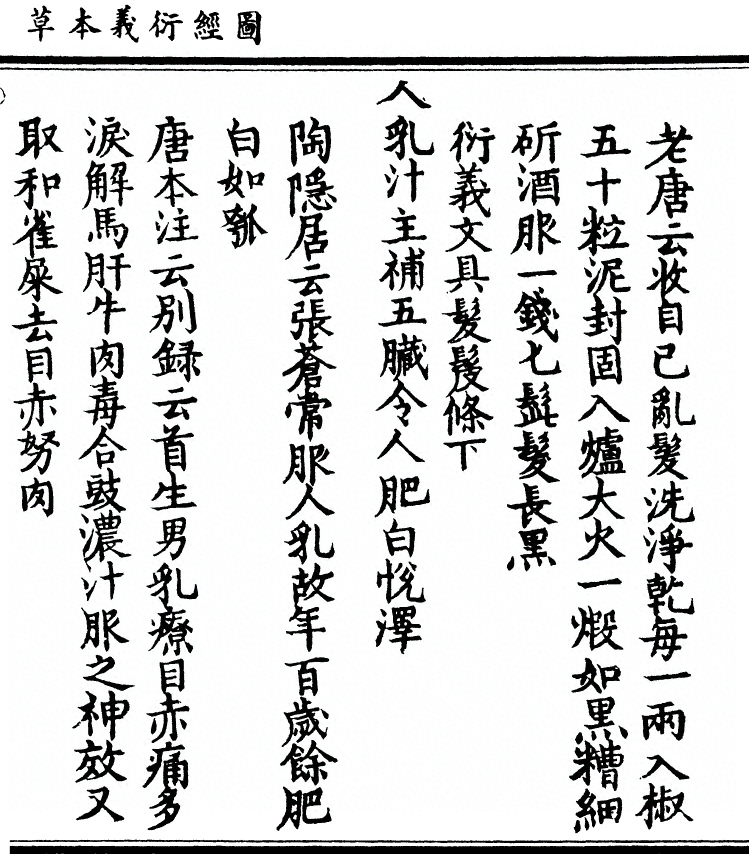 圖經衍義本草
老唐云收自己亂髮洗淨乾每一兩入椒
五十粒泥封固入爐大火一煅如黑糟細
斫酒服一錢七髭髮長黑
衍義文具髮髲條下
人乳汁主補五臟令人肥白悅澤
陶隱居云張蒼常服人乳故年百歲餘肥
白如瓠
唐本注云別録云首生男乳療目赤痛多
淚解馬肝牛肉毒合豉濃汁服之神效又
取和雀屎去目赤努肉